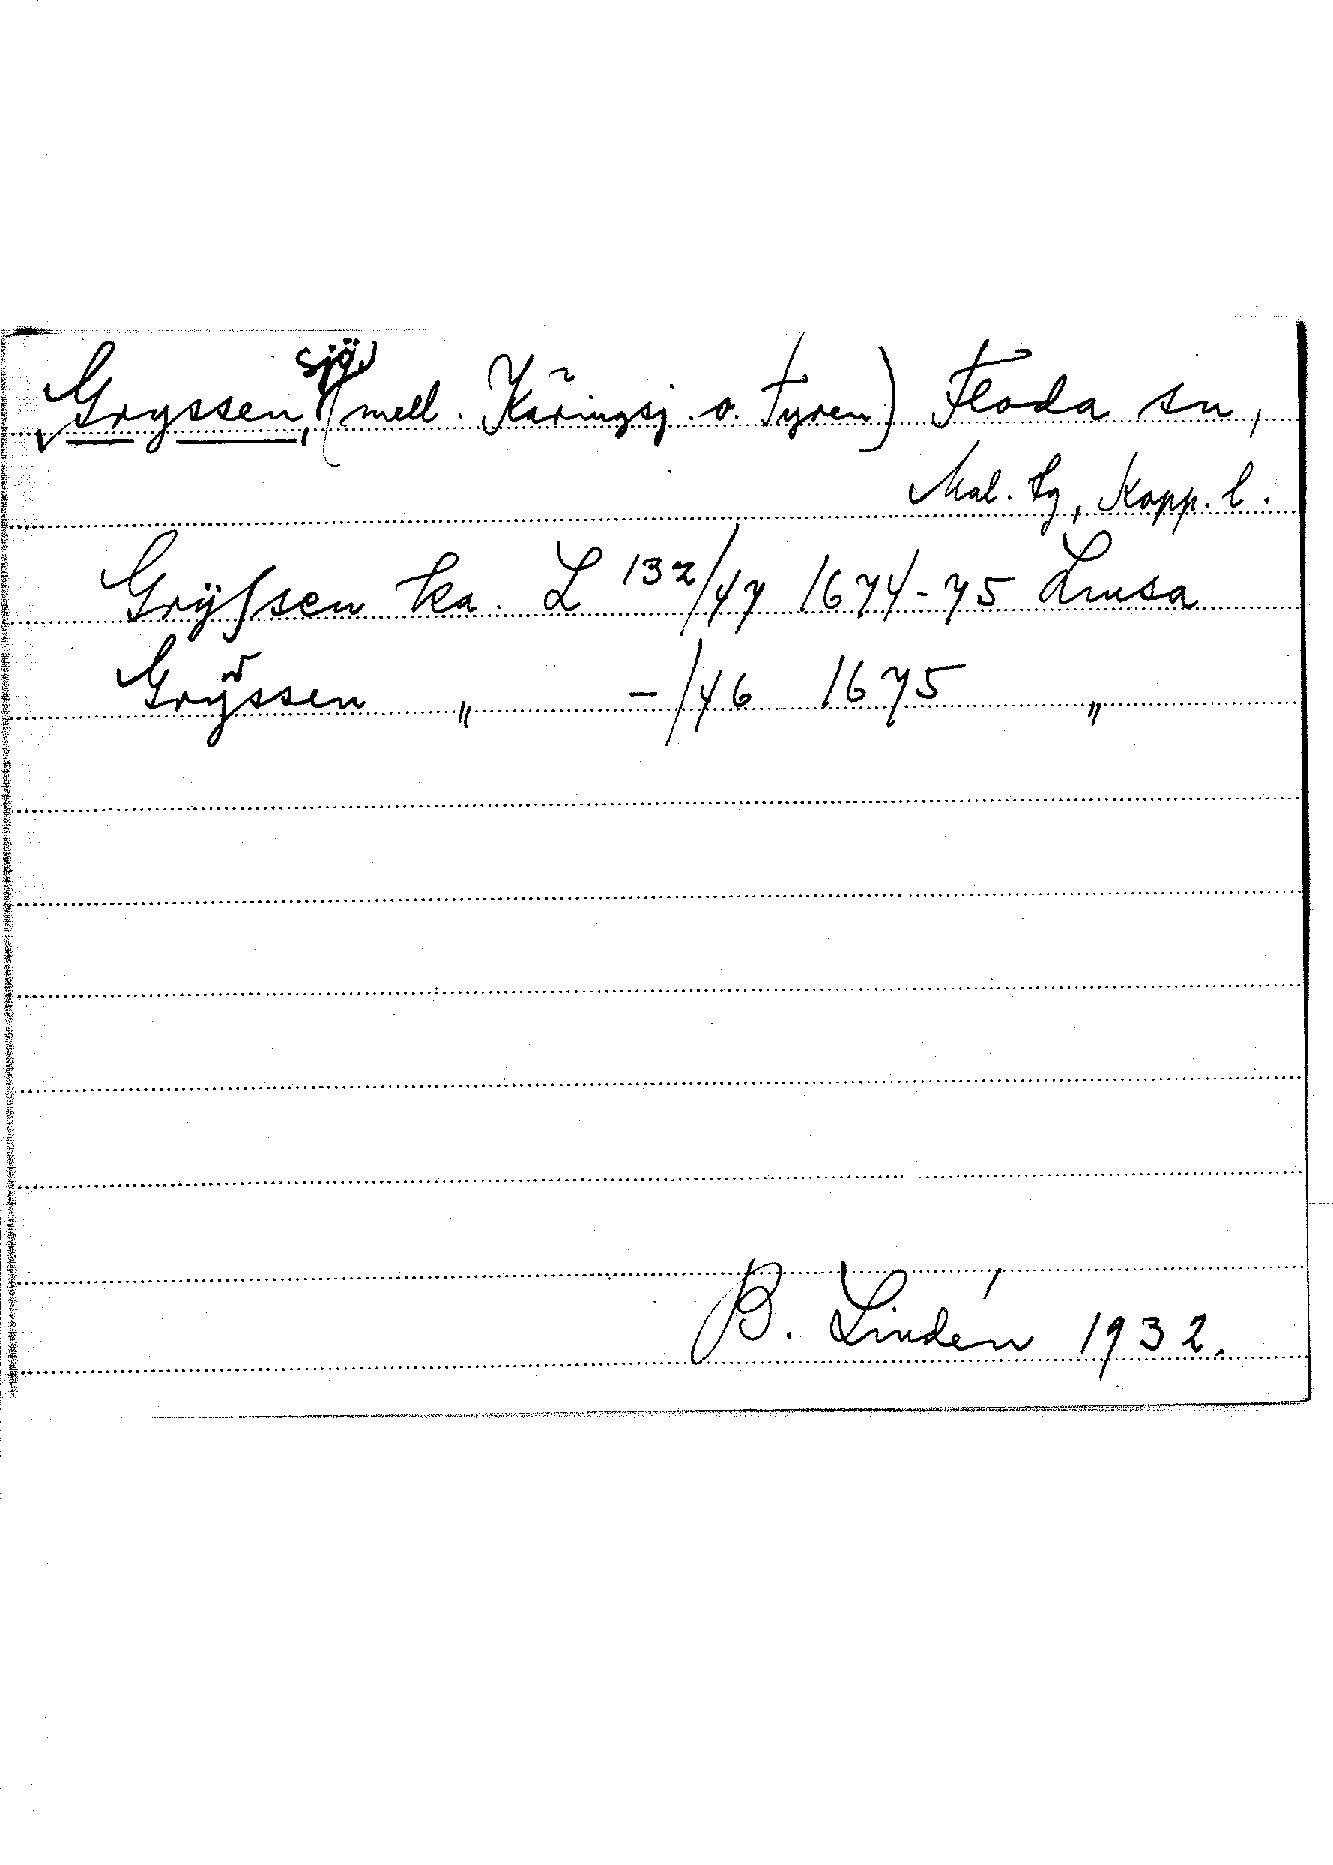 Gryssen, sjö, (mell. Käringsj. o. Tyren) Floda sn,
Mal. tg, Kopp. l.
Grÿssen ka. L 132/47 1674-75 Lmsa
Grÿssen „ -/46 1675 „
B. Lindén 1932.